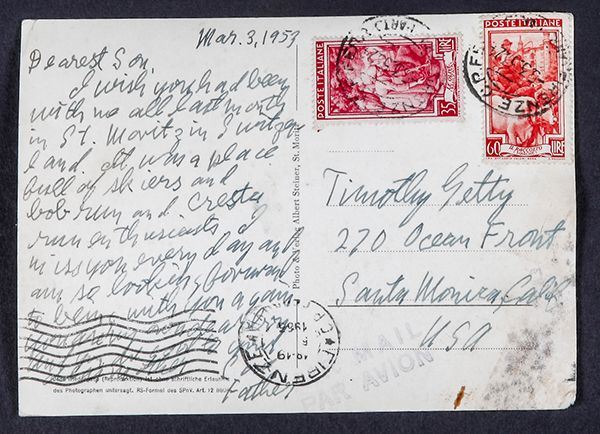 Mar. 3, 1953
Dearest Son,
I wish you had been
with me all last month
in St. Moritz in Switzer
land. It was a place
full of skiers and
bob run and Cresta
run enthusiasts. I
miss you every day and
am so looking forward
to being with you again
Father
Photo & Verlag Albert Steiner, St. Moritz
(Reproduktion) ist ohne schriftliche Erlaubnis
des Photographen untersagt. RS-Formel des SPhV. Art. 12
POSTE ITALIANE
35 LIRE
POSTE ITALIANE
60 LIRE
Timothy Getty
270 Ocean Front
Santa Monica, Calif
USA
FIRENZE
18-19
MAIL
PAR AVION